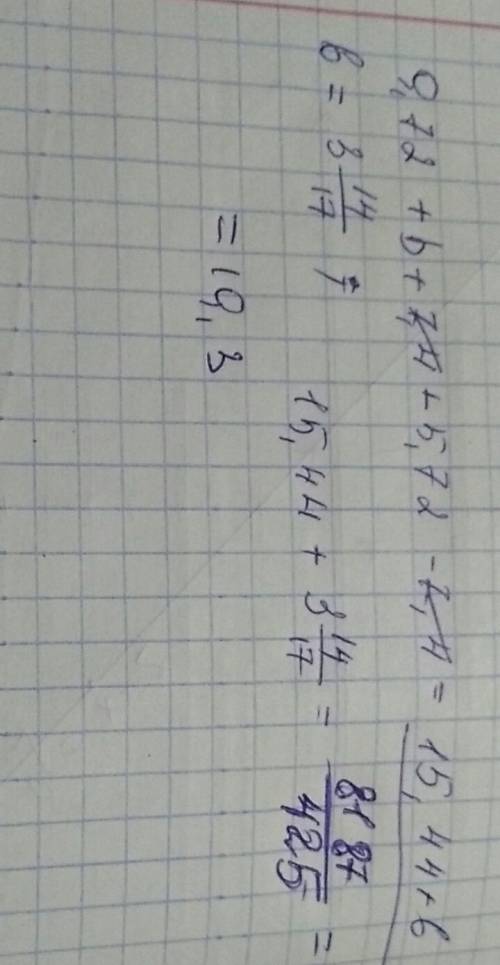 9,72 + b + 7,4 + 5,72 - 7,4 = 15,44 + b
b = 3 14/17 ;
15,44 + 3 14/17 = 8187/425 =
= 19,3